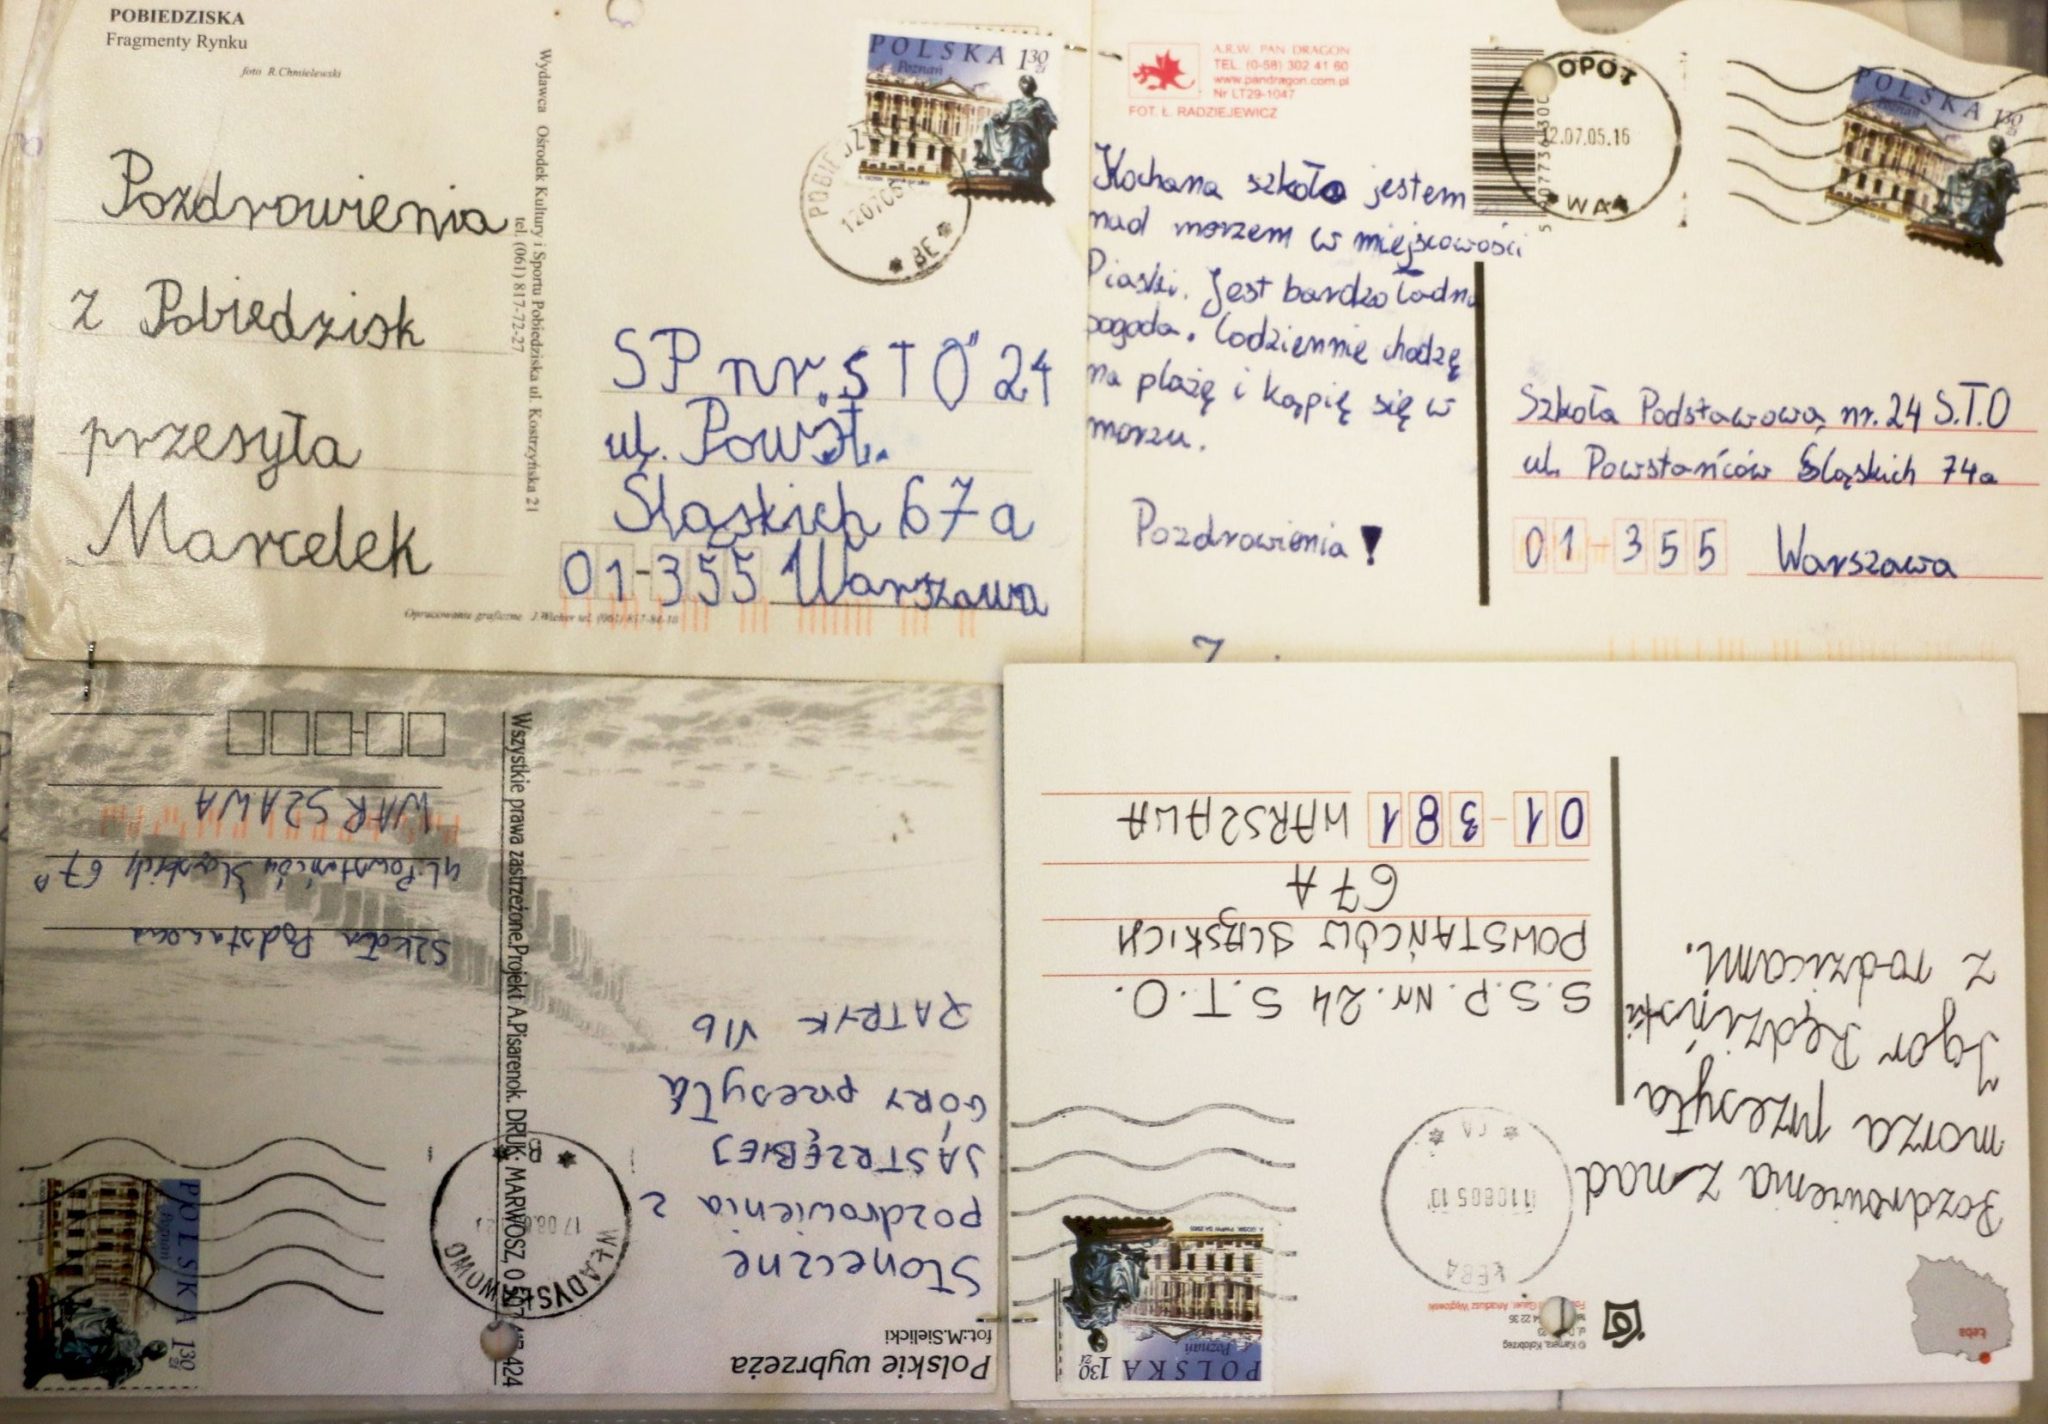 POBIEDZISKA
Fragmenty Rynku
foto R.Chmielewski
Pozdrowienia
z Pobiedzisk
przesyła
Marcelek
Wydawca Ośrodek Kultury i Sportu Pobiedziska ul. Kostrzyńska 21
tel. (061) 817-72-27
POLSKA 130 zł
Poznań
120705
BE
SP nr. STO" 24
ul. Powst.
Śląskich 67a
01-355 Warszawa
Opracowanie graficzne
A.R.W. PAN DRAGON
TEL. (0-58) 302 41 60
www.pandragon.com.pl
Nr LT29-1047
FOT. Ł. RADZIEJEWICZ
Kochana szkoło jestem
nad morzem w miejscowości
Piaski. Jest bardzo ładna
pogoda. Codziennie chodzę
na plażę i kąpię się w
morzu.
Pozdrowienia!
OPOT
12.07.05.16
POLSKA 130 zł
Poznań
Szkoła Podstawowa nr. 24 S.T.O
ul. Powstańców Śląskich 74a
01-355 Warszawa
Polskie wybrzeża
fot.:M.Sielicki
Słoneczne
pozdrowienia z
JASTRZĘBIEJ
GÓRY przesyła
PATRYK VIb
Wszystkie prawa zastrzeżone.Projekt A.Pisarenok. DRUK: MARWOSZ, 0
WŁADYSŁAWOWO
POLSKA 130 zł
Poznań
Szkoła Podstawowa
ul. Powstańców Śląskich 67A
WARSZAWA
Łeba
© Kamera, Kołobrzeg
Pozdrowienia znad
morza przesyła
Igor Rędziński
z rodzicami.
ŁEBA
110805 10
CA
POLSKA 130 zł
Poznań
S.S.P. Nr. 24 S.T.O.
POWSTAŃCÓW ŚLĄSKICH
67A
01-381 WARSZAWA